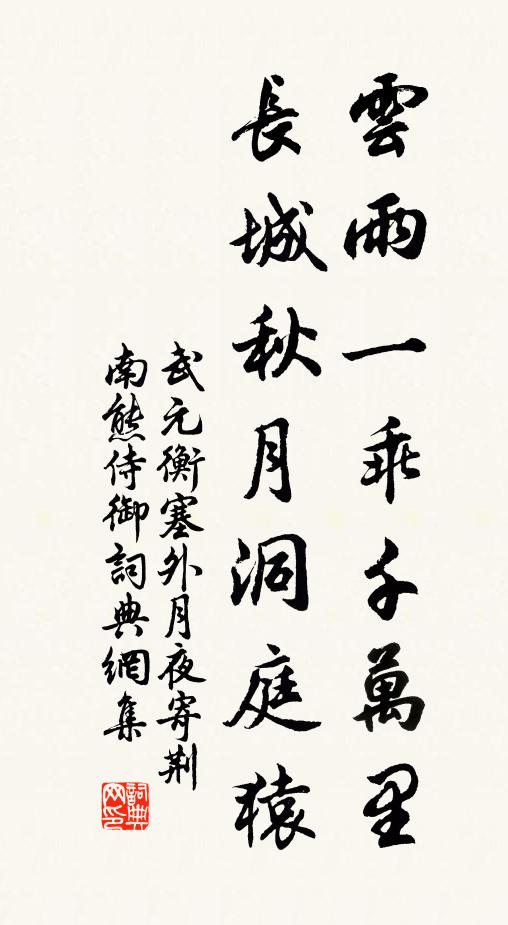 雲雨一乖千萬里
長城秋月洞庭猿
武元衡塞外月夜寄荆
南熊侍御詞典網集
詞典网印